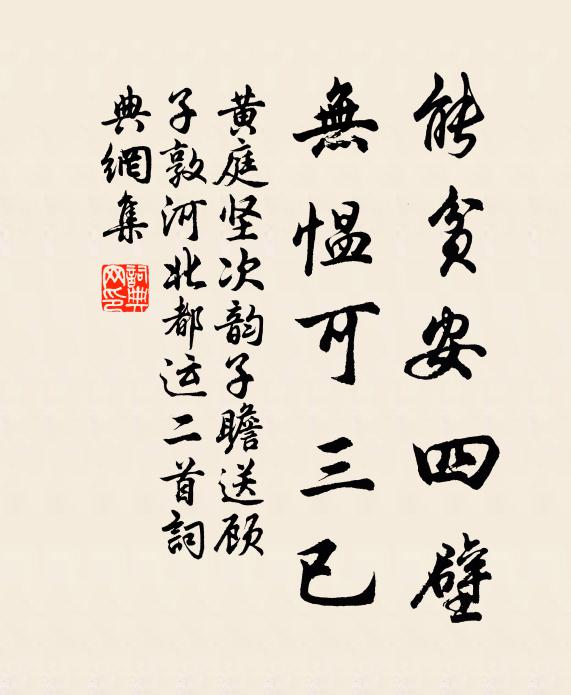 能貧安四壁
無愠可三已
黄庭坚次韵子瞻送顾
子敦河北都运二首詞
典網集
詞典
网印